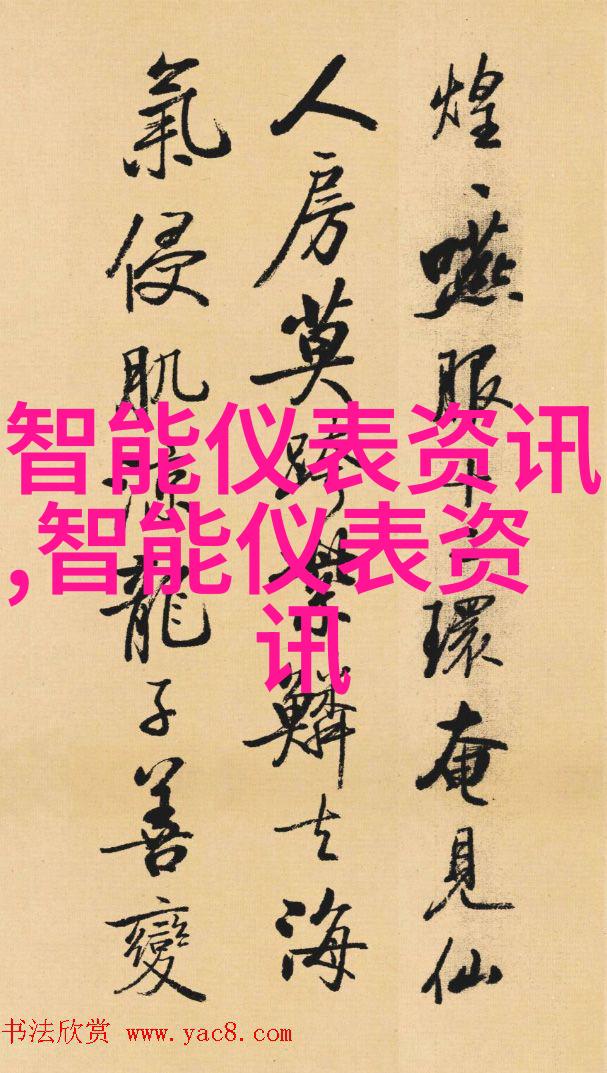 煌、嚥服十二環奄見仙
人房莫跨紫鱗去海
氣侵肌涼龍子善變
智能仪表资讯
,智能仪表资
讯
书法欣赏 www.yac8.com